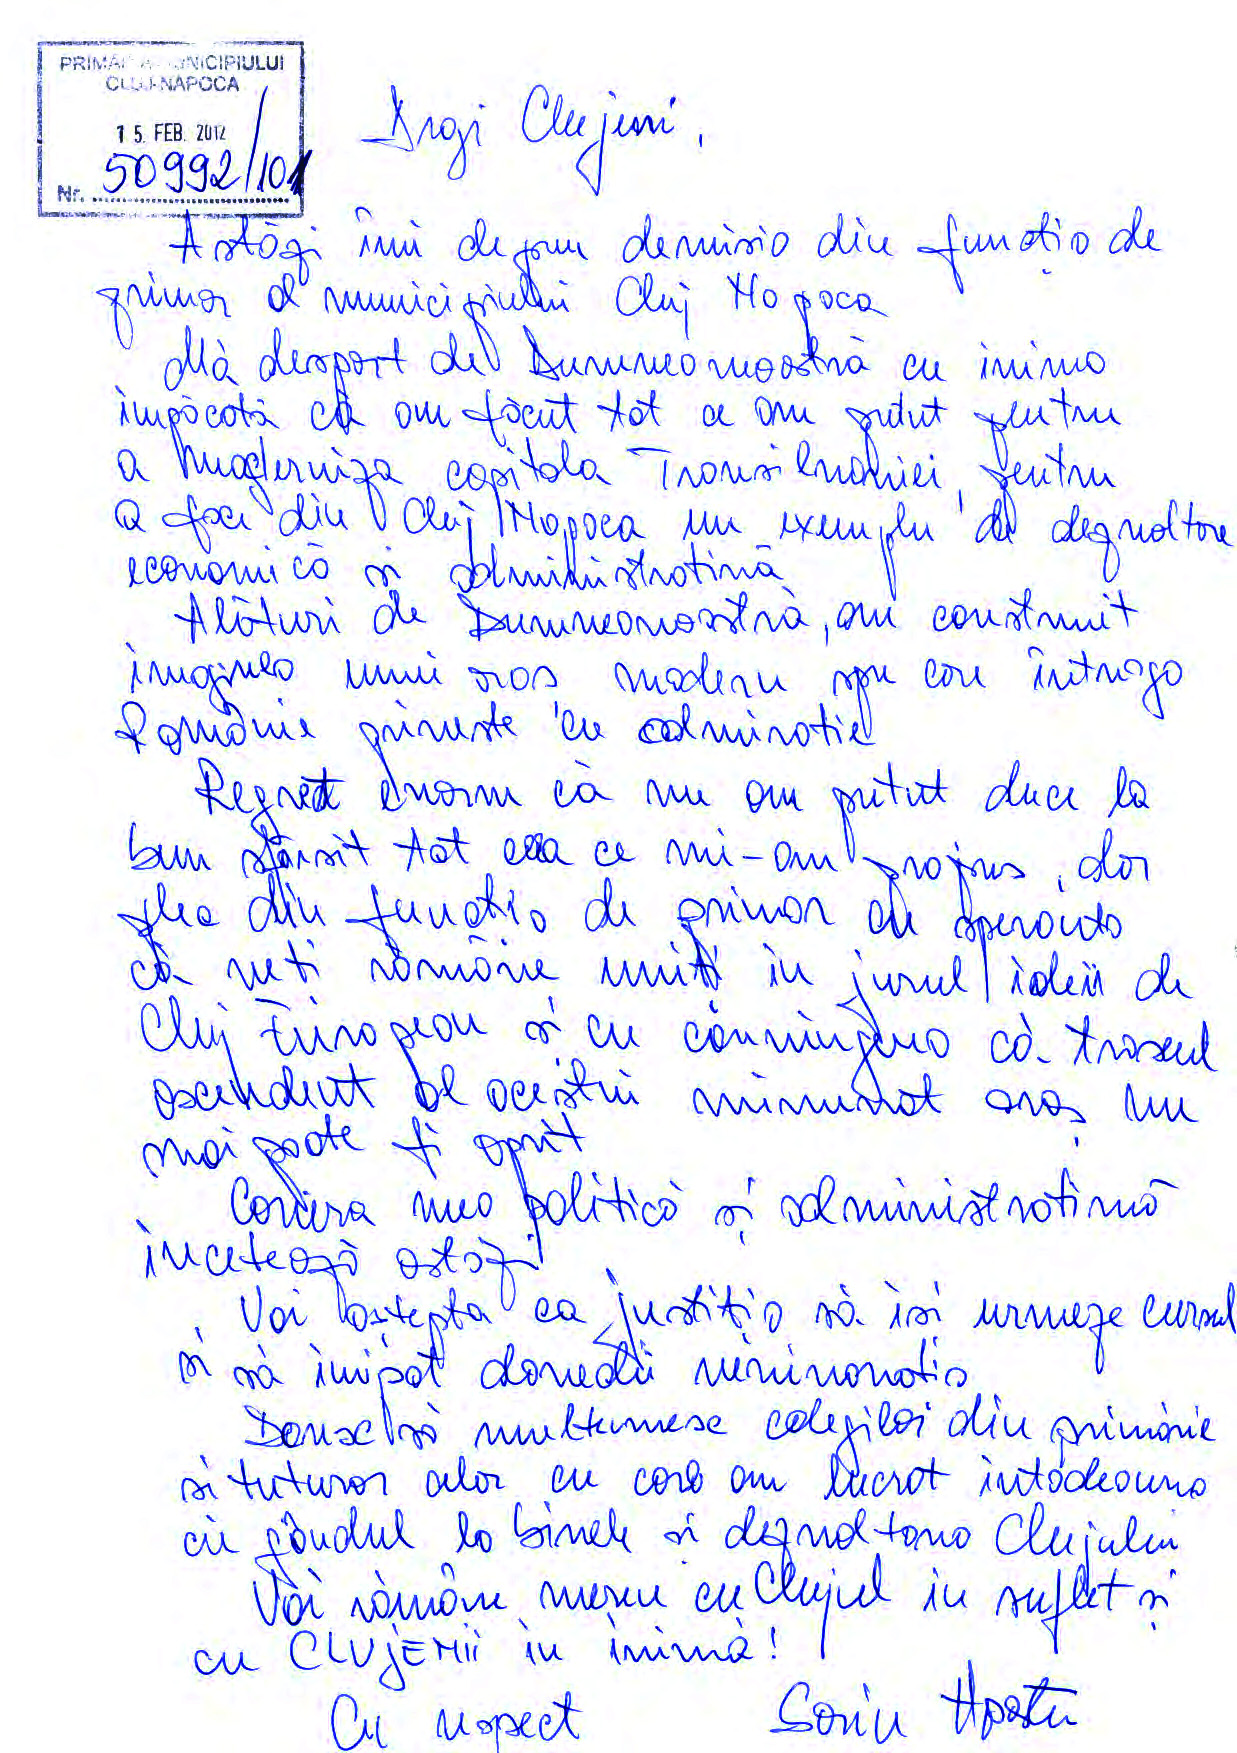 PRIMĂRIA MUNICIPIULUI
CLUJ-NAPOCA
15. FEB. 2012
Nr. 50992/101
Dragi Clujeni,
Astăzi îmi depun demisia din funcția de
primar al municipiului Cluj Napoca
Mă despart de Dumneavoastră cu inima
împăcată că am făcut tot ce am putut pentru
a moderniza capitala Transilvaniei, pentru
a face din Cluj Napoca un exemplu de dezvoltare
economică si administrativă
Alături de Dumneavoastră, am construit
imaginea unui oraș modern spre care întreaga
Românie priveste cu admiratie
Regret enorm că nu am putut duce la
bun sfârsit tot ceea ce mi-am propus, dar
plec din functia de primar cu speranta
că veti rămâne uniti în jurul ideii de
Cluj European si cu convingerea că traseul
ascendent al acestui minunat oraș nu
mai poate fi oprit
Cariera mea politică și administrativă
încetează astăzi
Voi aștepta ca justiția să își urmeze cursul
si să îmi pot dovedii nevinovatia
Doresc să multumesc colegilor din primărie
si tuturor celor cu care am lucrat întodeauna
cu gândul la binele si dezvoltarea Clujului
Voi rămâne mereu cu Clujul în suflet și
cu CLUJENII în inimă!
Cu respect Sorin Apostu